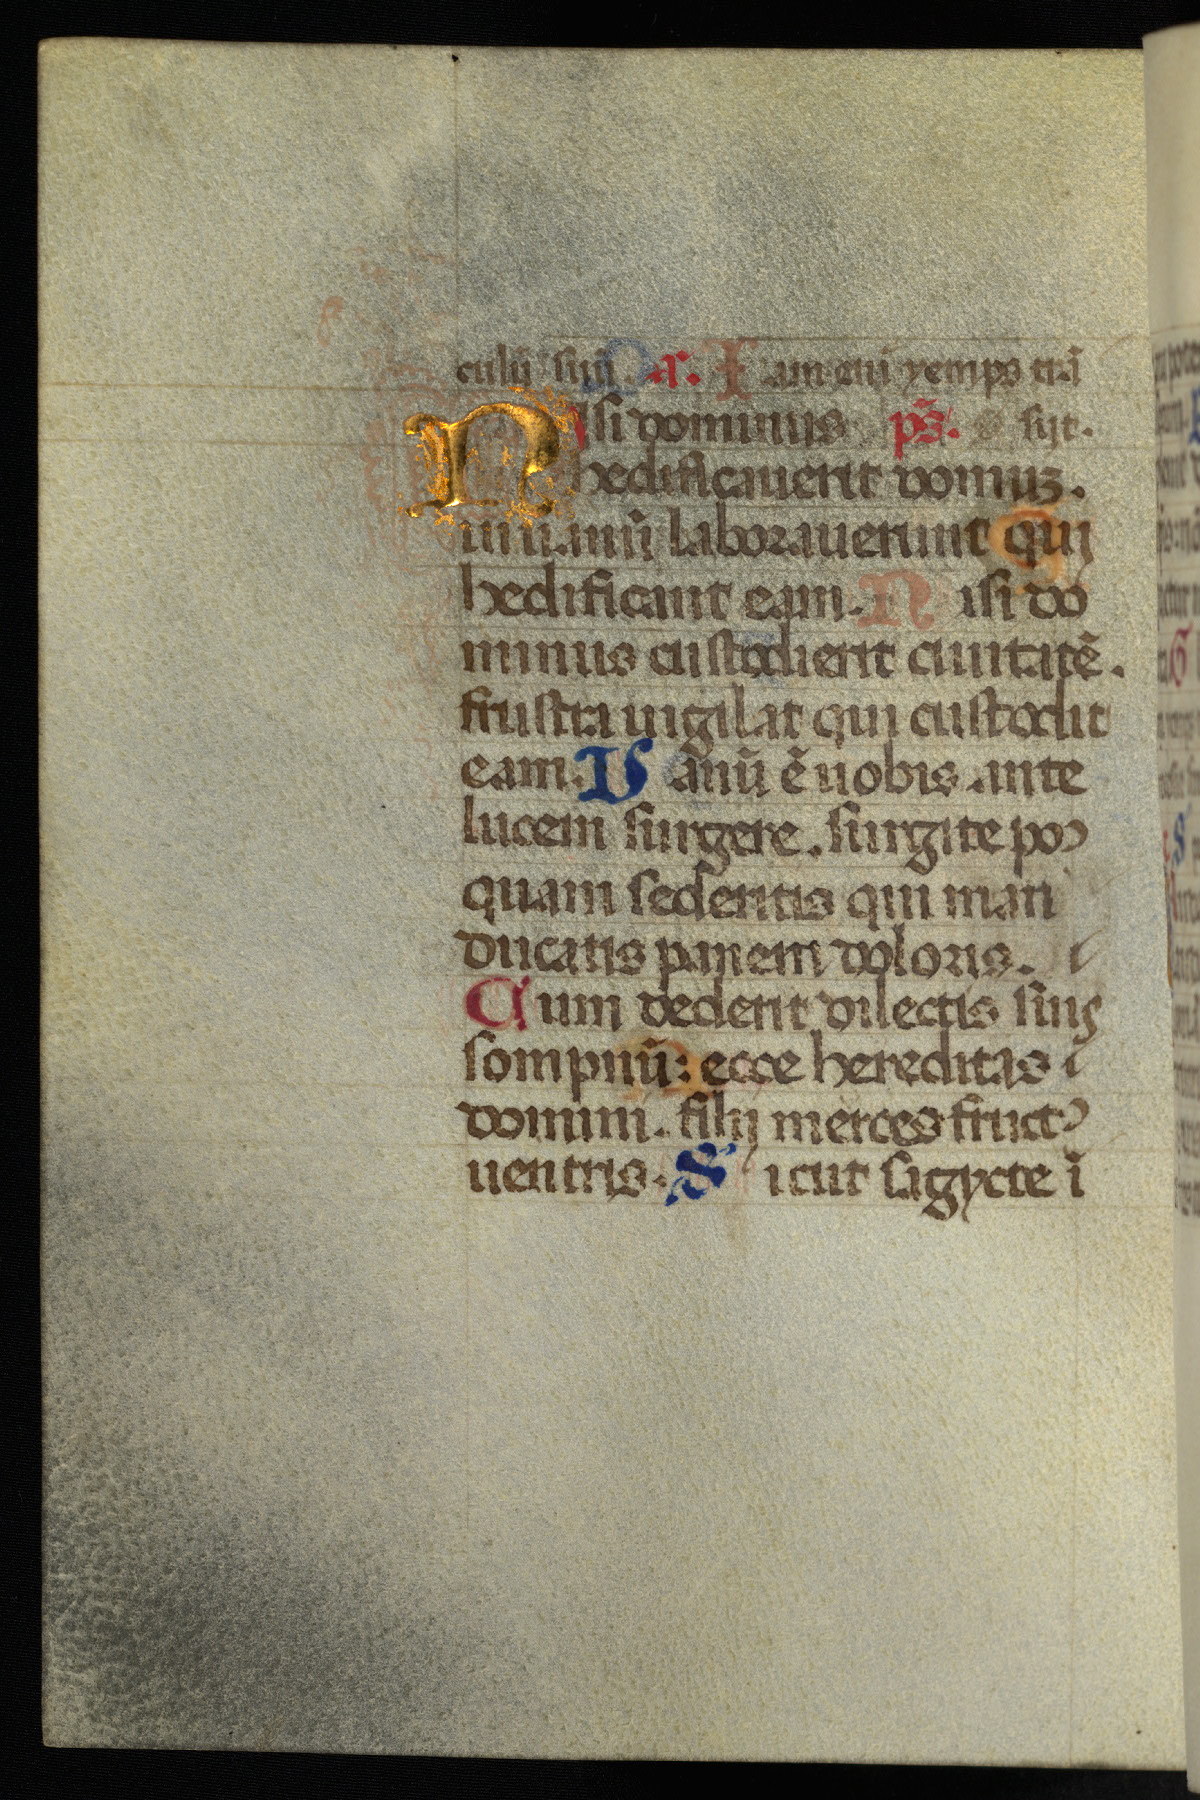 culū suū. a. Iam eni yemps trā
Nisi dominus ps. sijt.
hedificauerit domuz.
in uanū laborauerunt qui
hedificant eam. Nisi do
minus custodierit ciuitatē.
frustra uigilat qui custodit
eam. Uanū ē uobis ante
lucem surgere. surgite pos
quam sederitis qui man
ducatis panem doloris.
Cum dederit dilectis suis
sompnū: ecce hereditas
domini. filij merces fruct9
uentris. Sicut sagycte ī